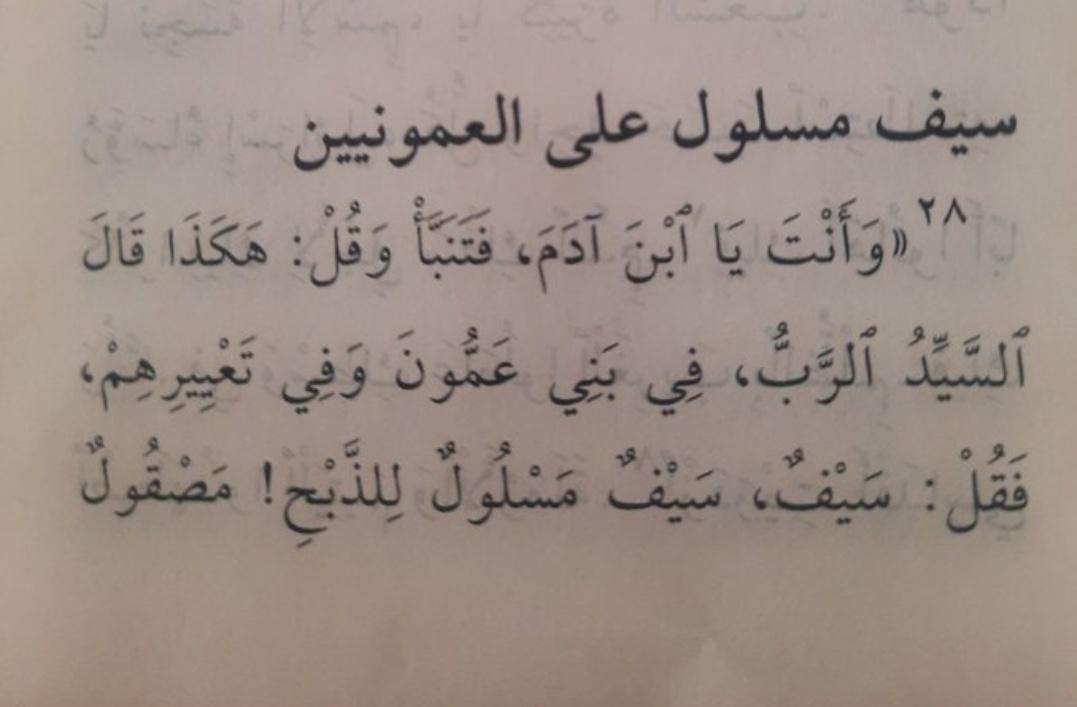 سيف مسلول على العمونيين
٢٨ «وَأَنْتَ يَا ٱبْنَ آدَمَ، فَتَنَبَّأْ وَقُلْ: هَكَذَا قَالَ
ٱلسَّيِّدُ ٱلرَّبُّ، فِي بَنِي عَمُّونَ وَفِي تَعْيِيرِهِمْ،
فَقُلْ: سَيْفٌ، سَيْفٌ مَسْلُولٌ لِلذَّبْحِ! مَصْقُولٌ